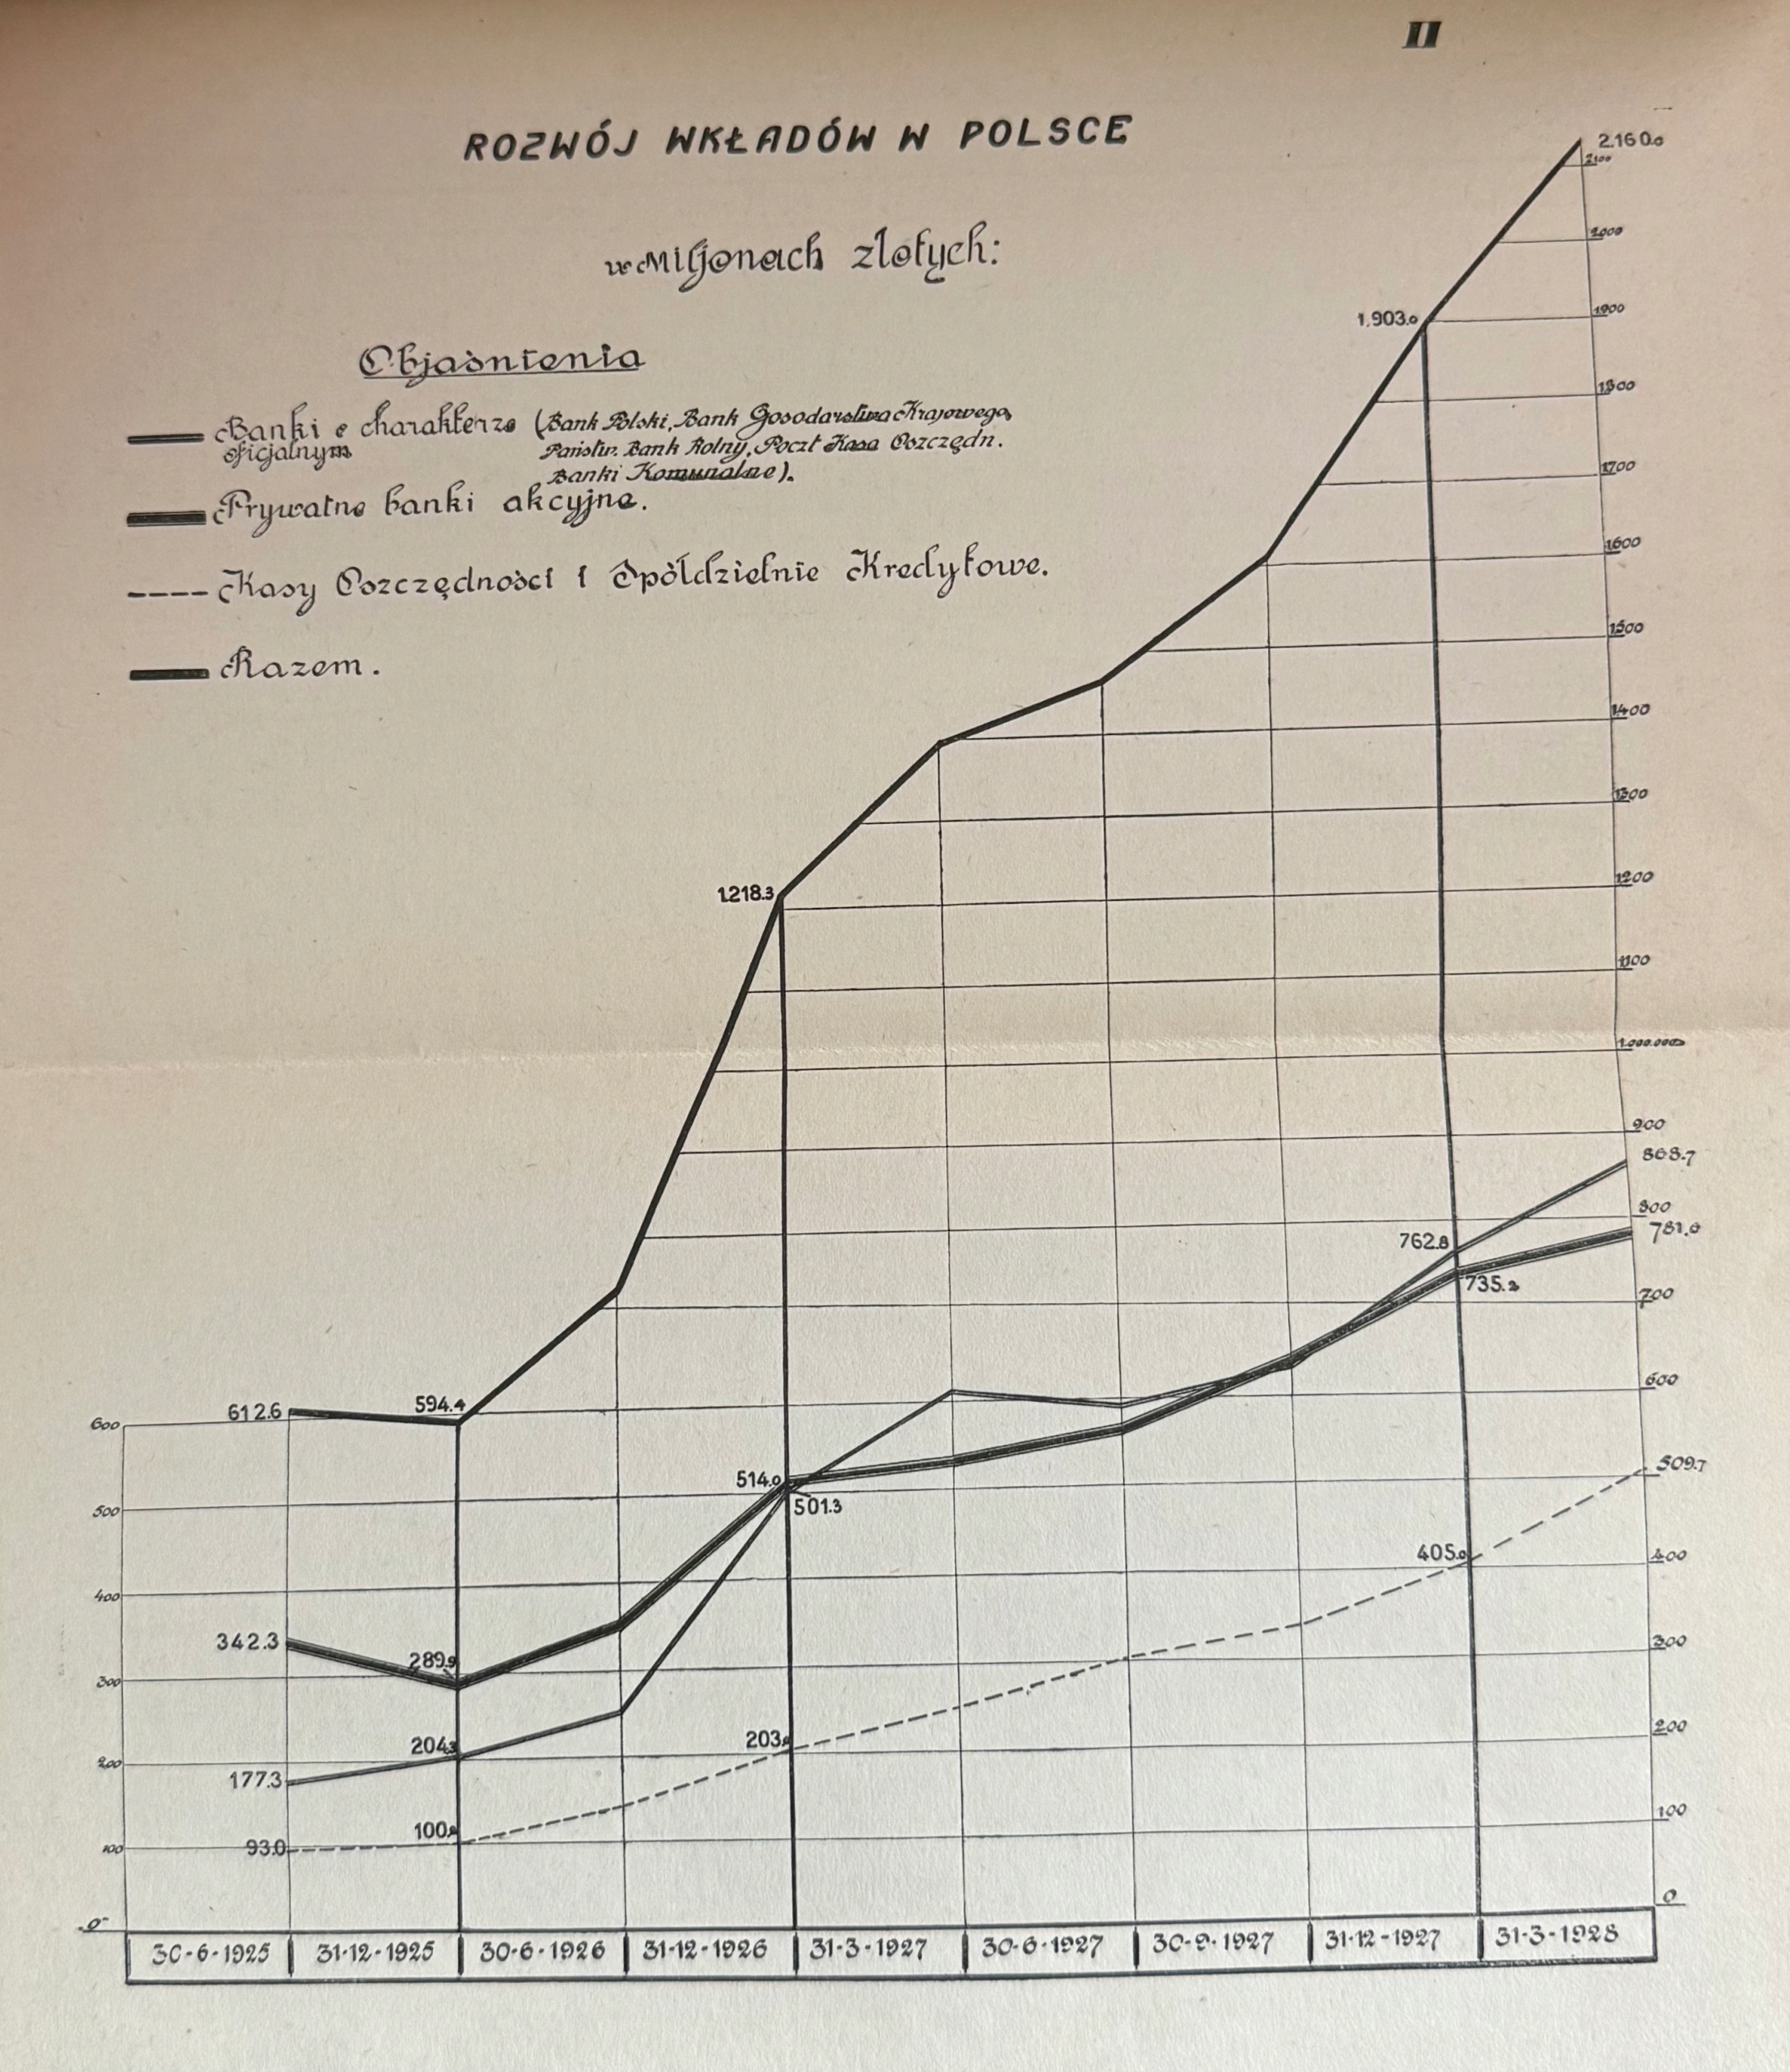 II
ROZWÓJ WKŁADÓW W POLSCE
w Miljonach złotych:
Objaśnienia
Banki o charakterze (Bank Polski, Bank Gosodarstwa Krajowego,
oficjalnym Państw. Bank Rolny, Poczt Kasa Oszczędn.
Banki Komunalne).
Prywatne banki akcyjne.
Kasy Oszczędności i Spółdzielnie Kredytowe.
Razem.
2.160.0
2100
2000
1.903.0
1900
1800
1700
1600
1500
1400
1300
1.218.3
1200
1100
1.000.000
900
868.7
800
781.6
762.8
735.2
700
612.6
594.4
600
600
514.0
501.3
500
509.7
405.0
400
400
342.3
289.9
300
300
204.3
203.
200
200
177.3
100.
100
93.0
100
0
0
30-6-1925 31-12-1925 30-6-1926 31-12-1926 31-3-1927 30-6-1927 30-9-1927 31-12-1927 31-3-1928